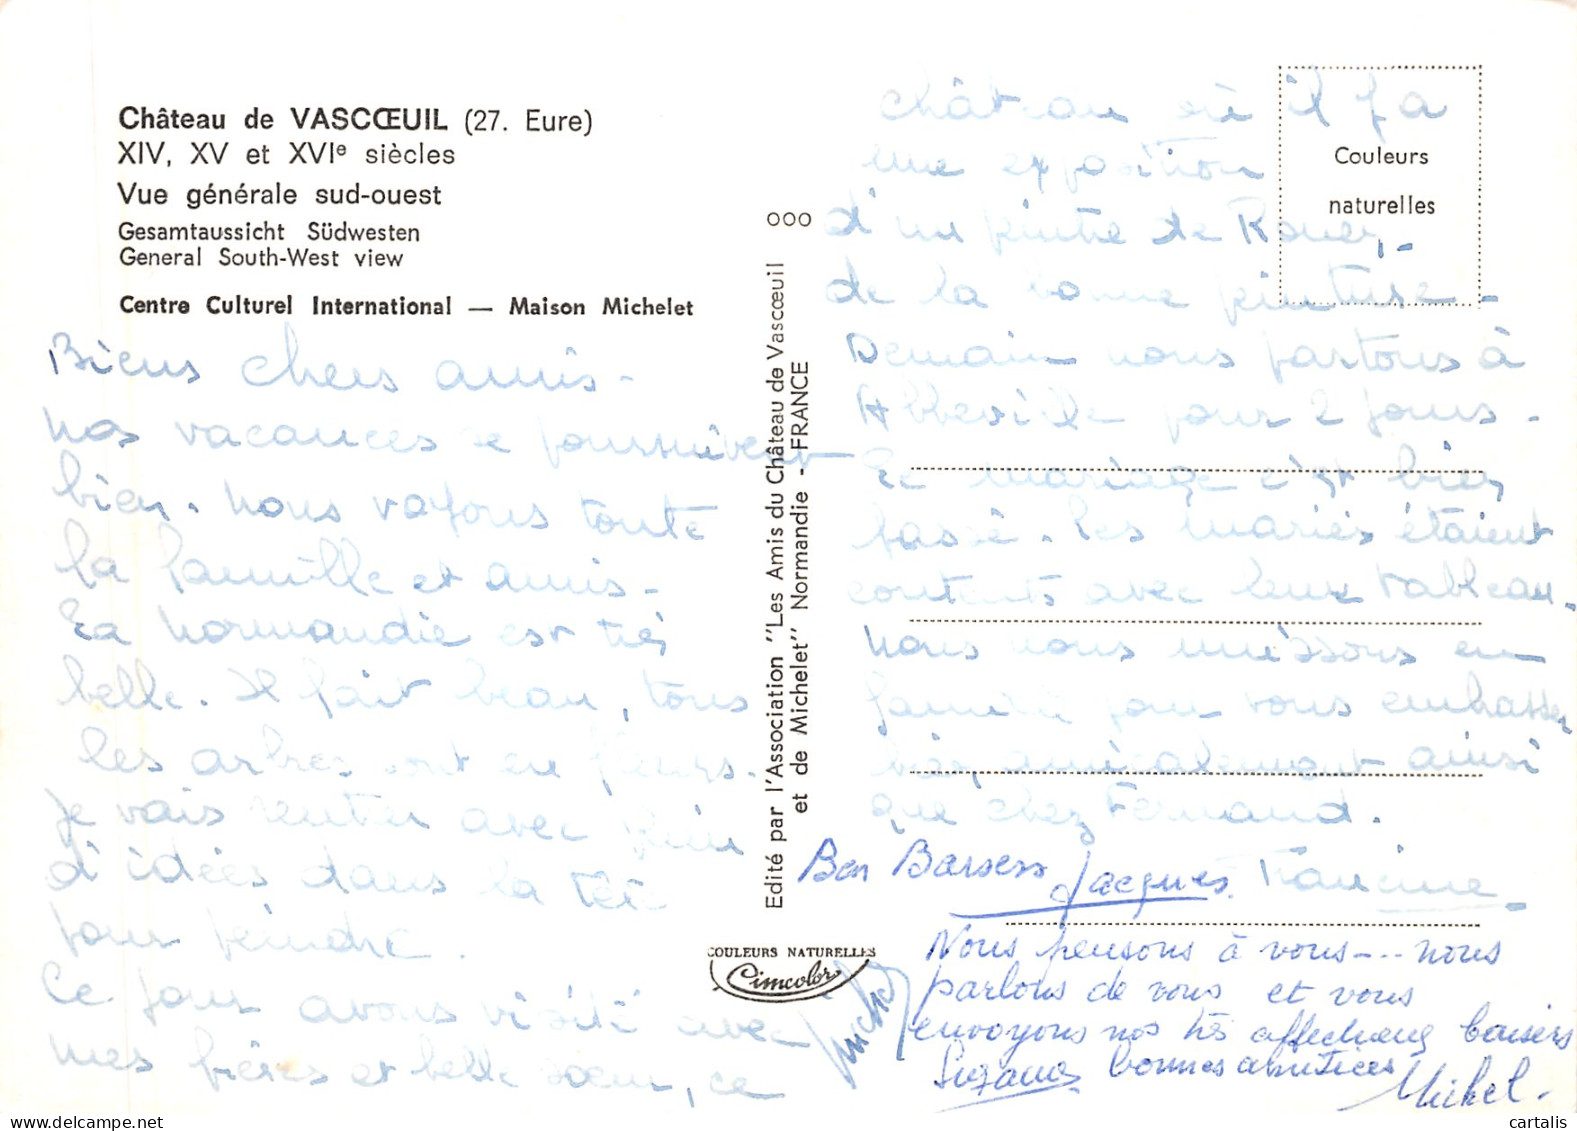 Château de VASCŒUIL (27. Eure)
XIV, XV et XVIe siècles
Vue générale sud-ouest
Gesamtaussicht Südwesten
General South-West view
Centre Culturel International — Maison Michelet
Biens chers amis -
nos vacances se poursuivent
bien. Nous voyons toute
la famille et amis -
La Normandie est très
belle. Il fait beau, tous
les arbres sont en fleurs.
Je vais rentrer avec plein
d'idées dans la tête
pour peindre.
Ce jour avons visité avec
mes frères et belle sœur, ce
OOO
Edité par l'Association "Les Amis du Château de Vascœuil
et de Michelet" Normandie - FRANCE
COULEURS NATURELLES
Cimcolor
Couleurs
naturelles
château où il y a
une exposition
d'un peintre de Rouen -
de la bonne peinture -
Demain nous partons à
Abbeville pour 2 jours -
Le mariage c'est bien
passé. Les mariés étaient
contents avec leur tableau.
Nous nous unissons en
famille pour vous embrasser
bien amicalement ainsi
que chez Fernand.
Bon Baisers Jacques Francine
Nous pensons à vous --- nous
parlons de vous et vous
envoyons nos très affectueux baisers
Suzanne bonnes amitiés
Michel.